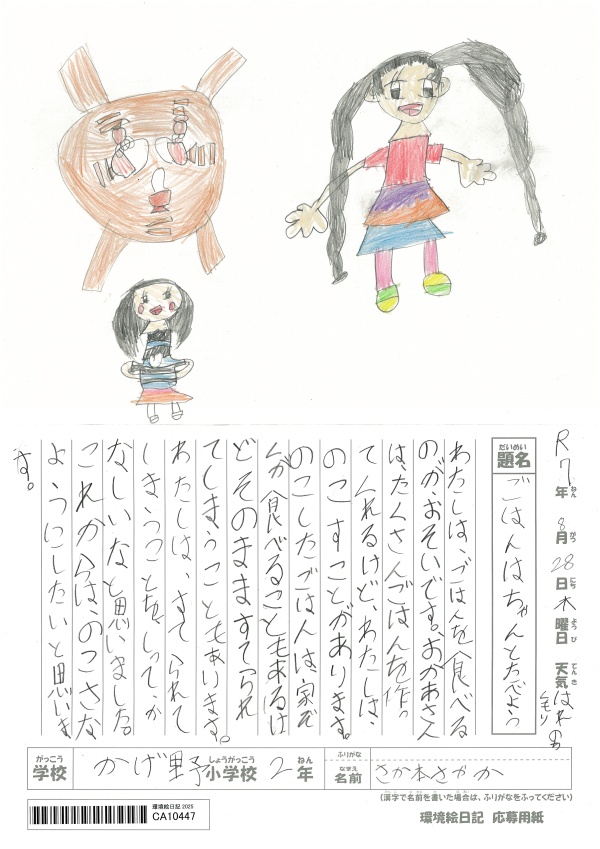 R7年 8月28日木曜日 天気はれのちくもり
ねん がつ にち ようび てんき
だいめい
題名 ごはんはちゃんとたべよう
わたしは、ごはんを食べる
のが、おそいです。おかあさん
は、たくさんごはんを作っ
てくれるけど、わたしは、
のこすことがあります。
のこしたごはんは、家ぞ
くが食べることも来るけ
どそのまますてられ
てしまうこともあります。
わたしは、すてられて
しまうことをしって、か
なしいなと思いました。
これからは、のこさな
ようにしたいと思いま
す。
がっこう
学校 かげ野 小学校 2年
しょうがっこう ねん
ふりがな
なまえ
名前 さか本さやか
(漢字で名前を書いた場合は、ふりがなをふってください)
環境絵日記 2025
CA10447
環境絵日記 応募用紙